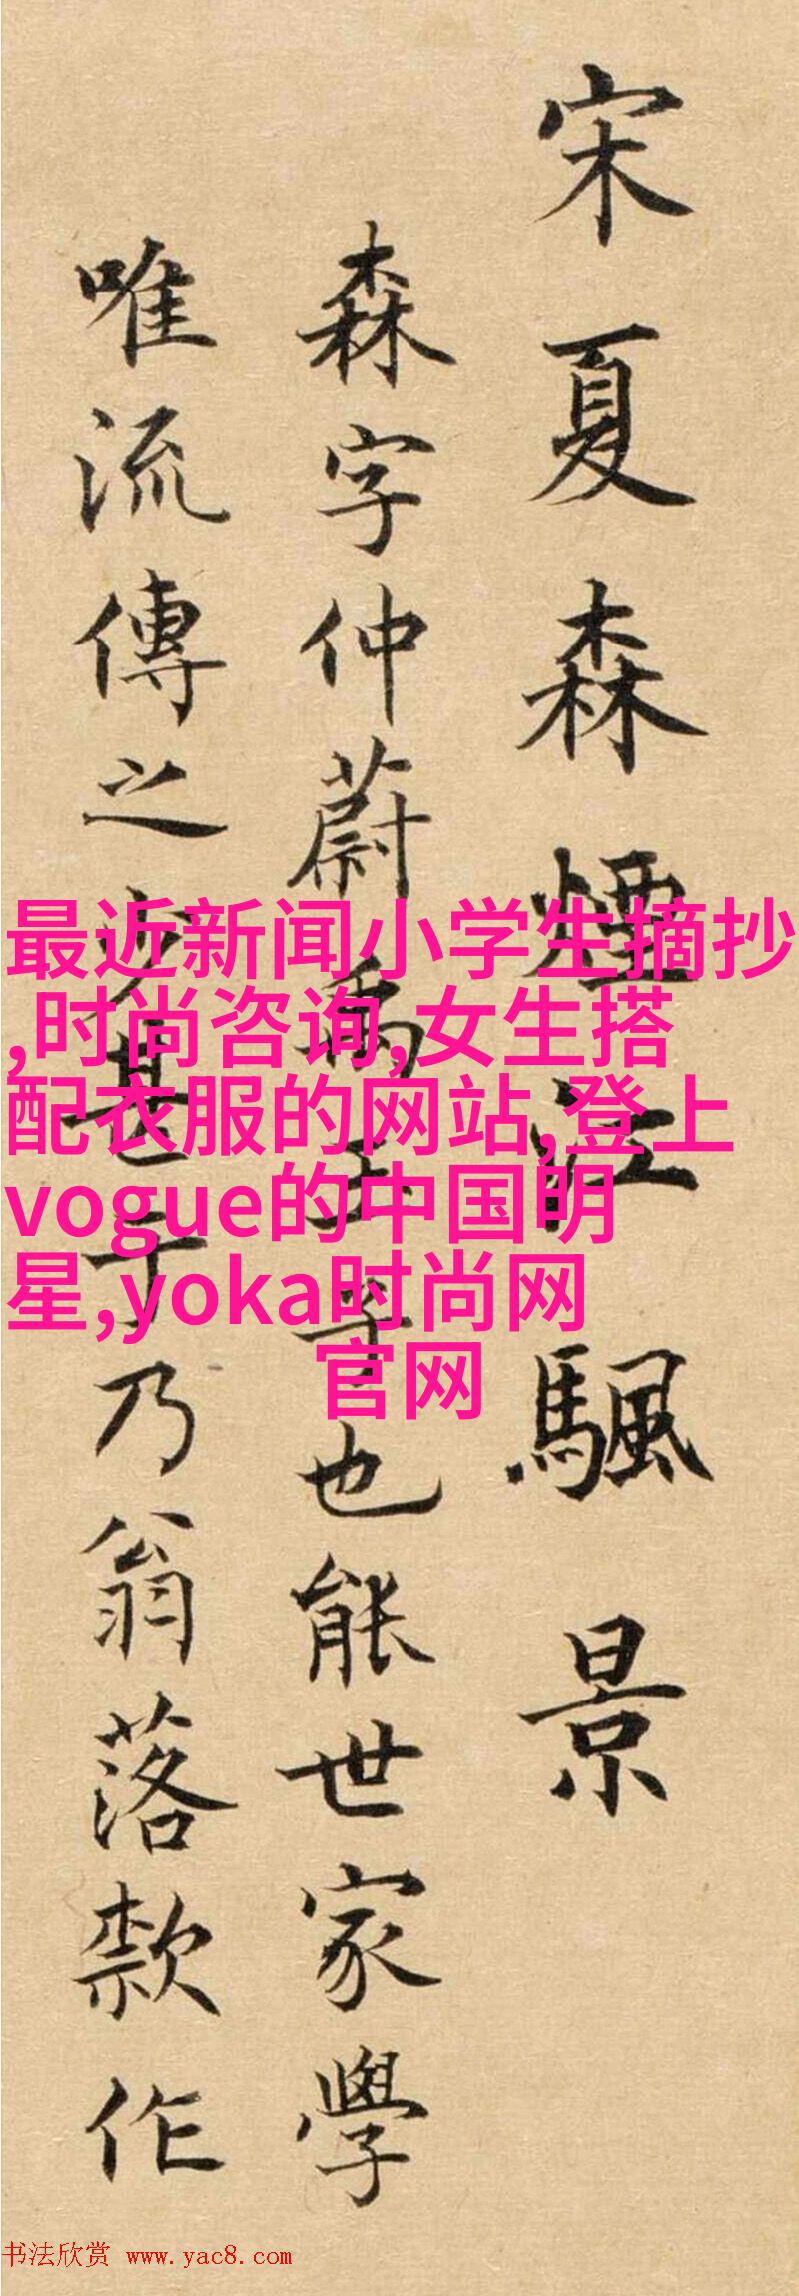 宋夏森煙江颿景
森字仲蔚禹玉子也能世家學
唯流傳之少甚于乃翁落款作
最近新闻小学生摘抄
,时尚咨询,女生搭
配衣服的网站,登上
vogue的中国明
星,yoka时尚网
官网
书法欣赏 www.yac8.com